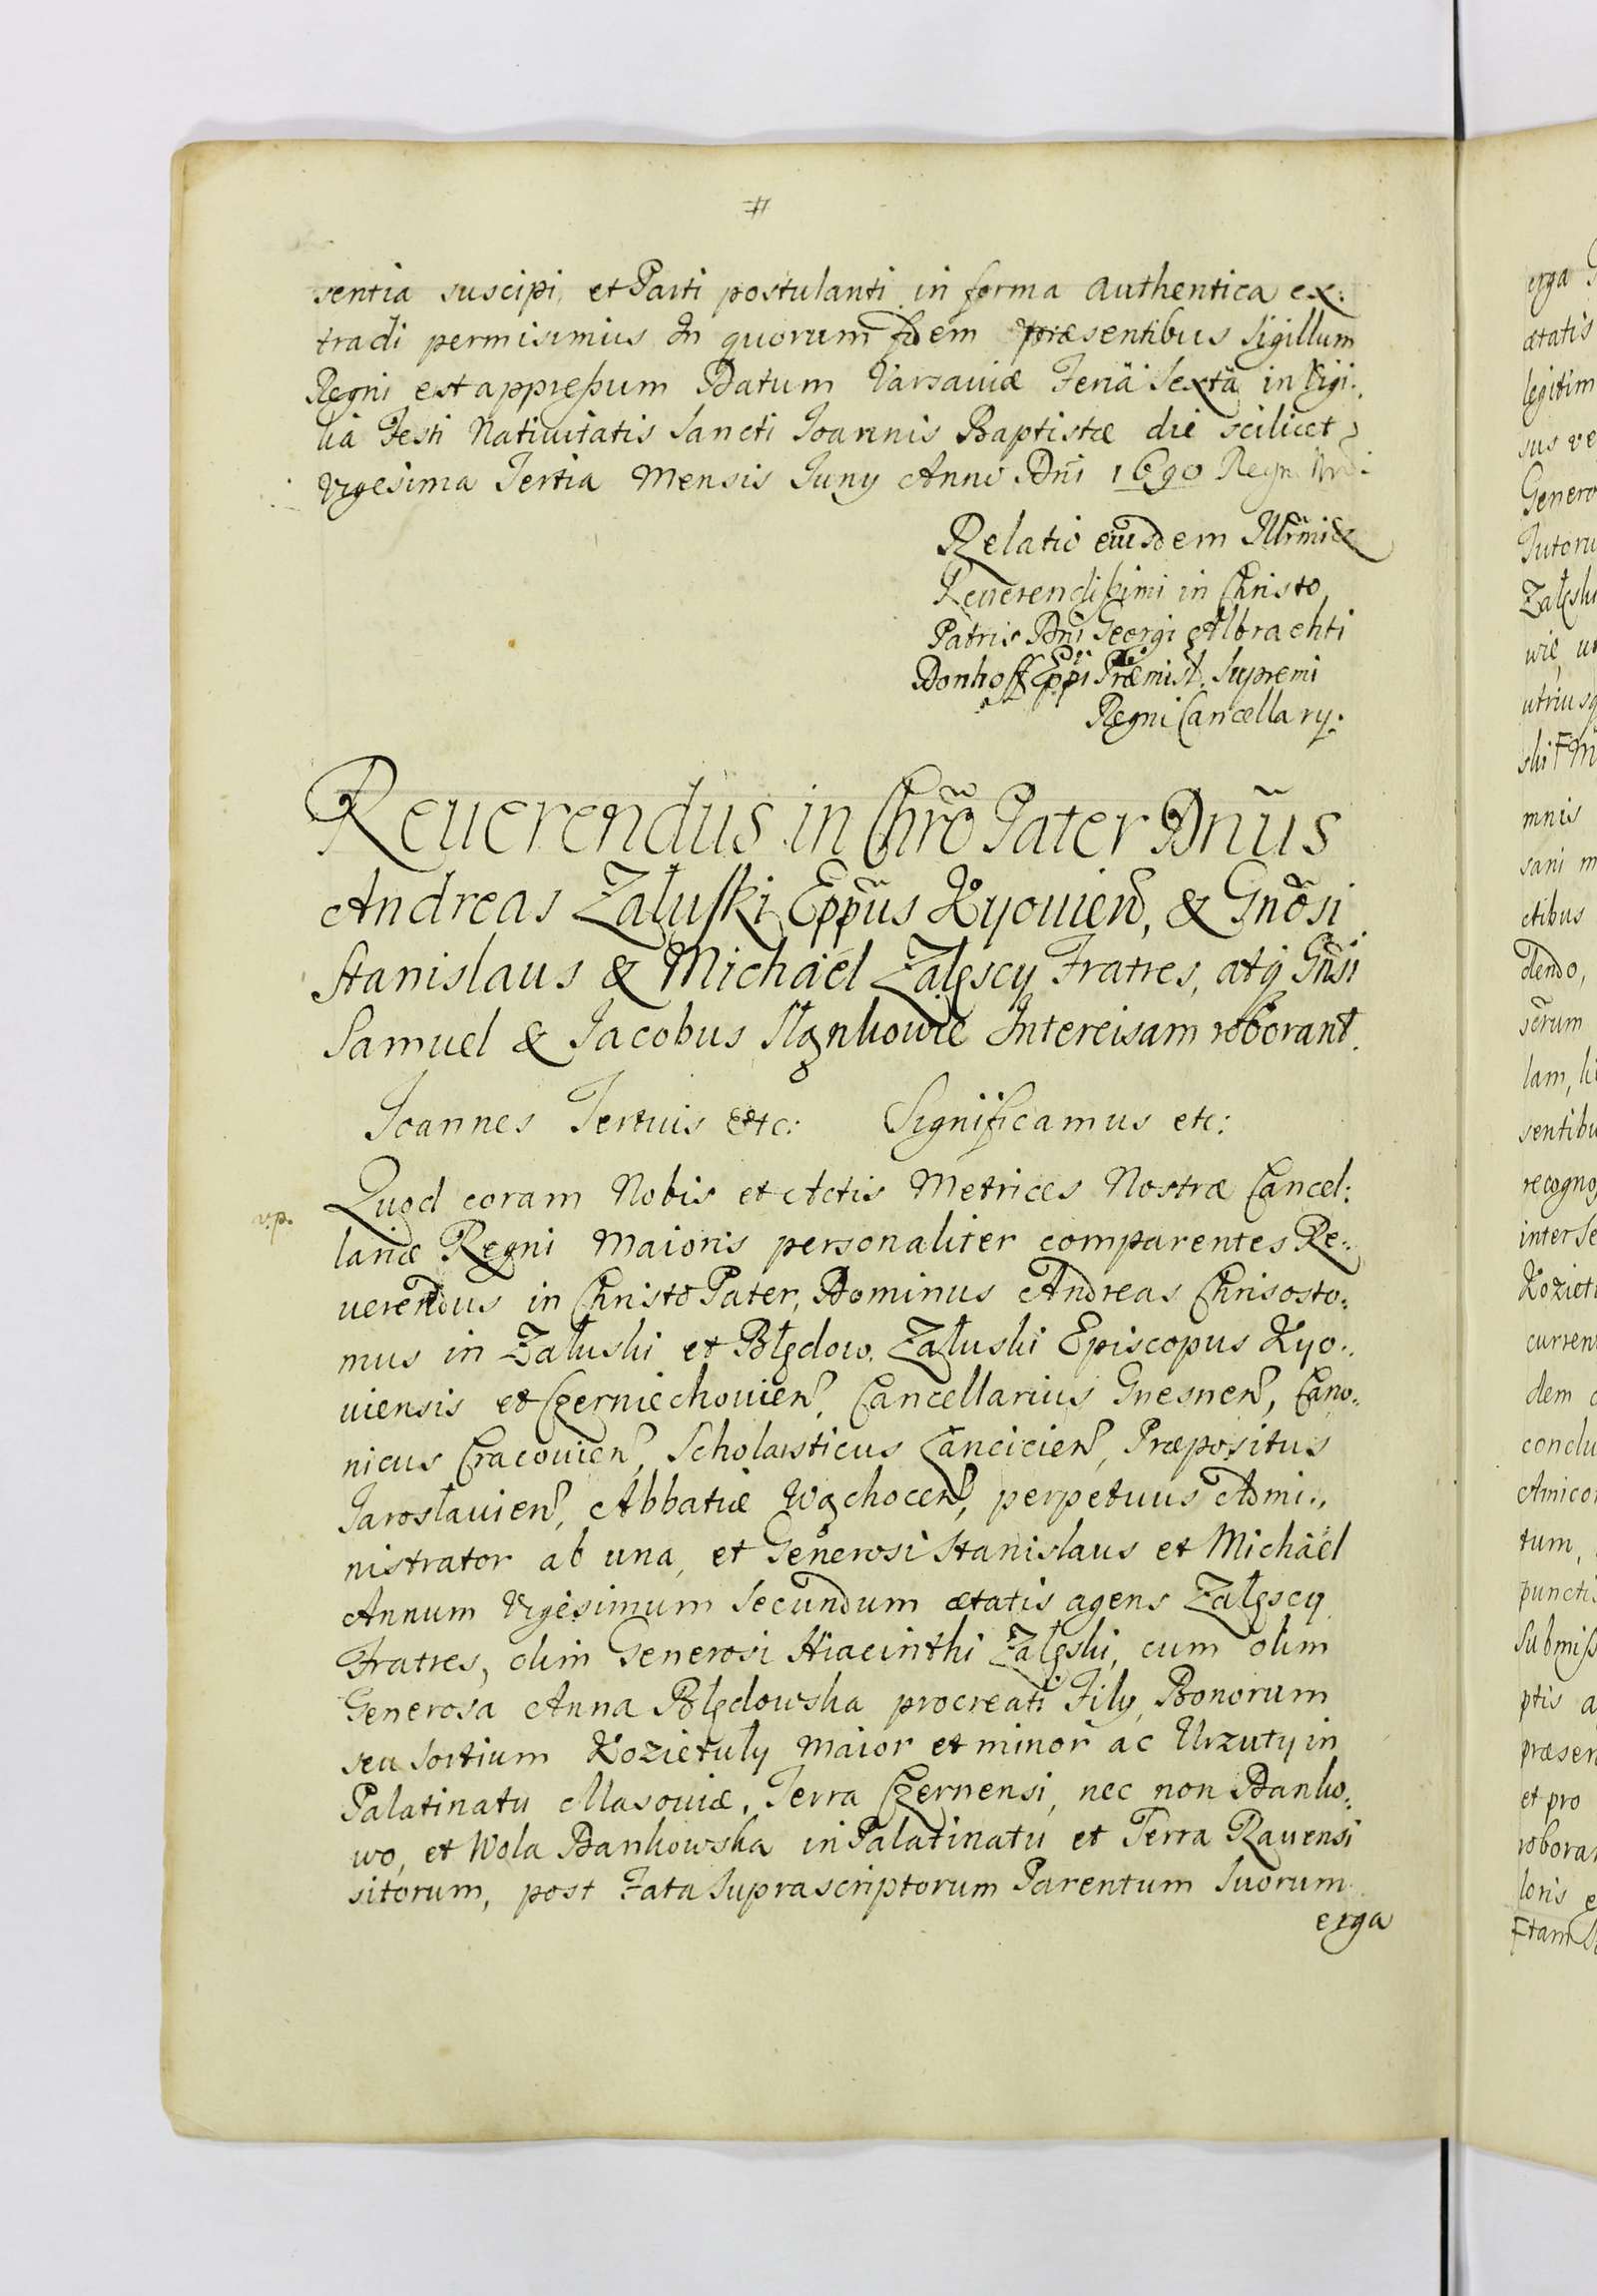 sentia suscipi, et Parti postulanti in forma authentica ex:
tradi permisimus In quorum fidem præsentibus Sigillum
Regni est appressum Datum Varsaviæ Feria Sexta in Vigi:
lia Festi Nativitatis Sancti Joannis Baptistæ die scilicet
Vigesima Tertia Mensis Juny Anno Dni 1690 Regn.
Relatio eiusdem Illrmi &
Reverendissimi in Christo
Patris Dni Georgi Albrachti
Donhoff Eppi Præmisl. Supremi
Regni Cancellary.
Reverendus in Chro Pater Dnus
Andreas Załuski Eppus Kyovien, & Gnosi
Stanislaus & Michaël Załęscy Fratres, atq Gnsi
Samuel & Jacobus Intercisam roborant.
Joannes Tertius Etc: Significamus etc:
v.p.
Quod coram Nobis et Actis Metrices Nostræ Cancel:
lariæ Regni Maioris personaliter comparentes Re:
uerendus in Christo Pater, Dominus Andreas Chrisosto:
mus in Załuski et Błędow Załuski Episcopus Kyo:
uiensis et Czerniechouien, Cancellarius Gnesnen, Cano:
nicus Cracouien, Scholasticus Lancicien, Præpositus
Jarosłauien, Abbatiæ Wąchocen, perpetuus Admi:
nistrator ab una, et Generosi Stanislaus et Michaël
Annum Vigesimum Secundum ætatis agens Załęscy
Fratres, olim Generosi Hiacinthi Załęski, cum olim
Generosa Anna Błędowska procreati Fily, Bonorum
seu Sortium Kozietuły Maior et minor ac Urzuty in
Palatinatu Masouiæ, Terra Czernensi, nec non Danko:
wo, et Wola Dankowska in Palatinatu et Terra Rauensi
sitorum, post Fata Suprascriptorum Parentum Suorum
erga
erga
ætatis
legitim
sus ve
Genero
Tutoru
Załęski
utriusq
mnis
sani m
ctibus
dendo,
lam, li
sentibu
recogno
inter Se
Koziet
curren
dem
conclu
Amico
tum,
puncti
Submiss
ptis a
præsen
et pro
roboran
loris e